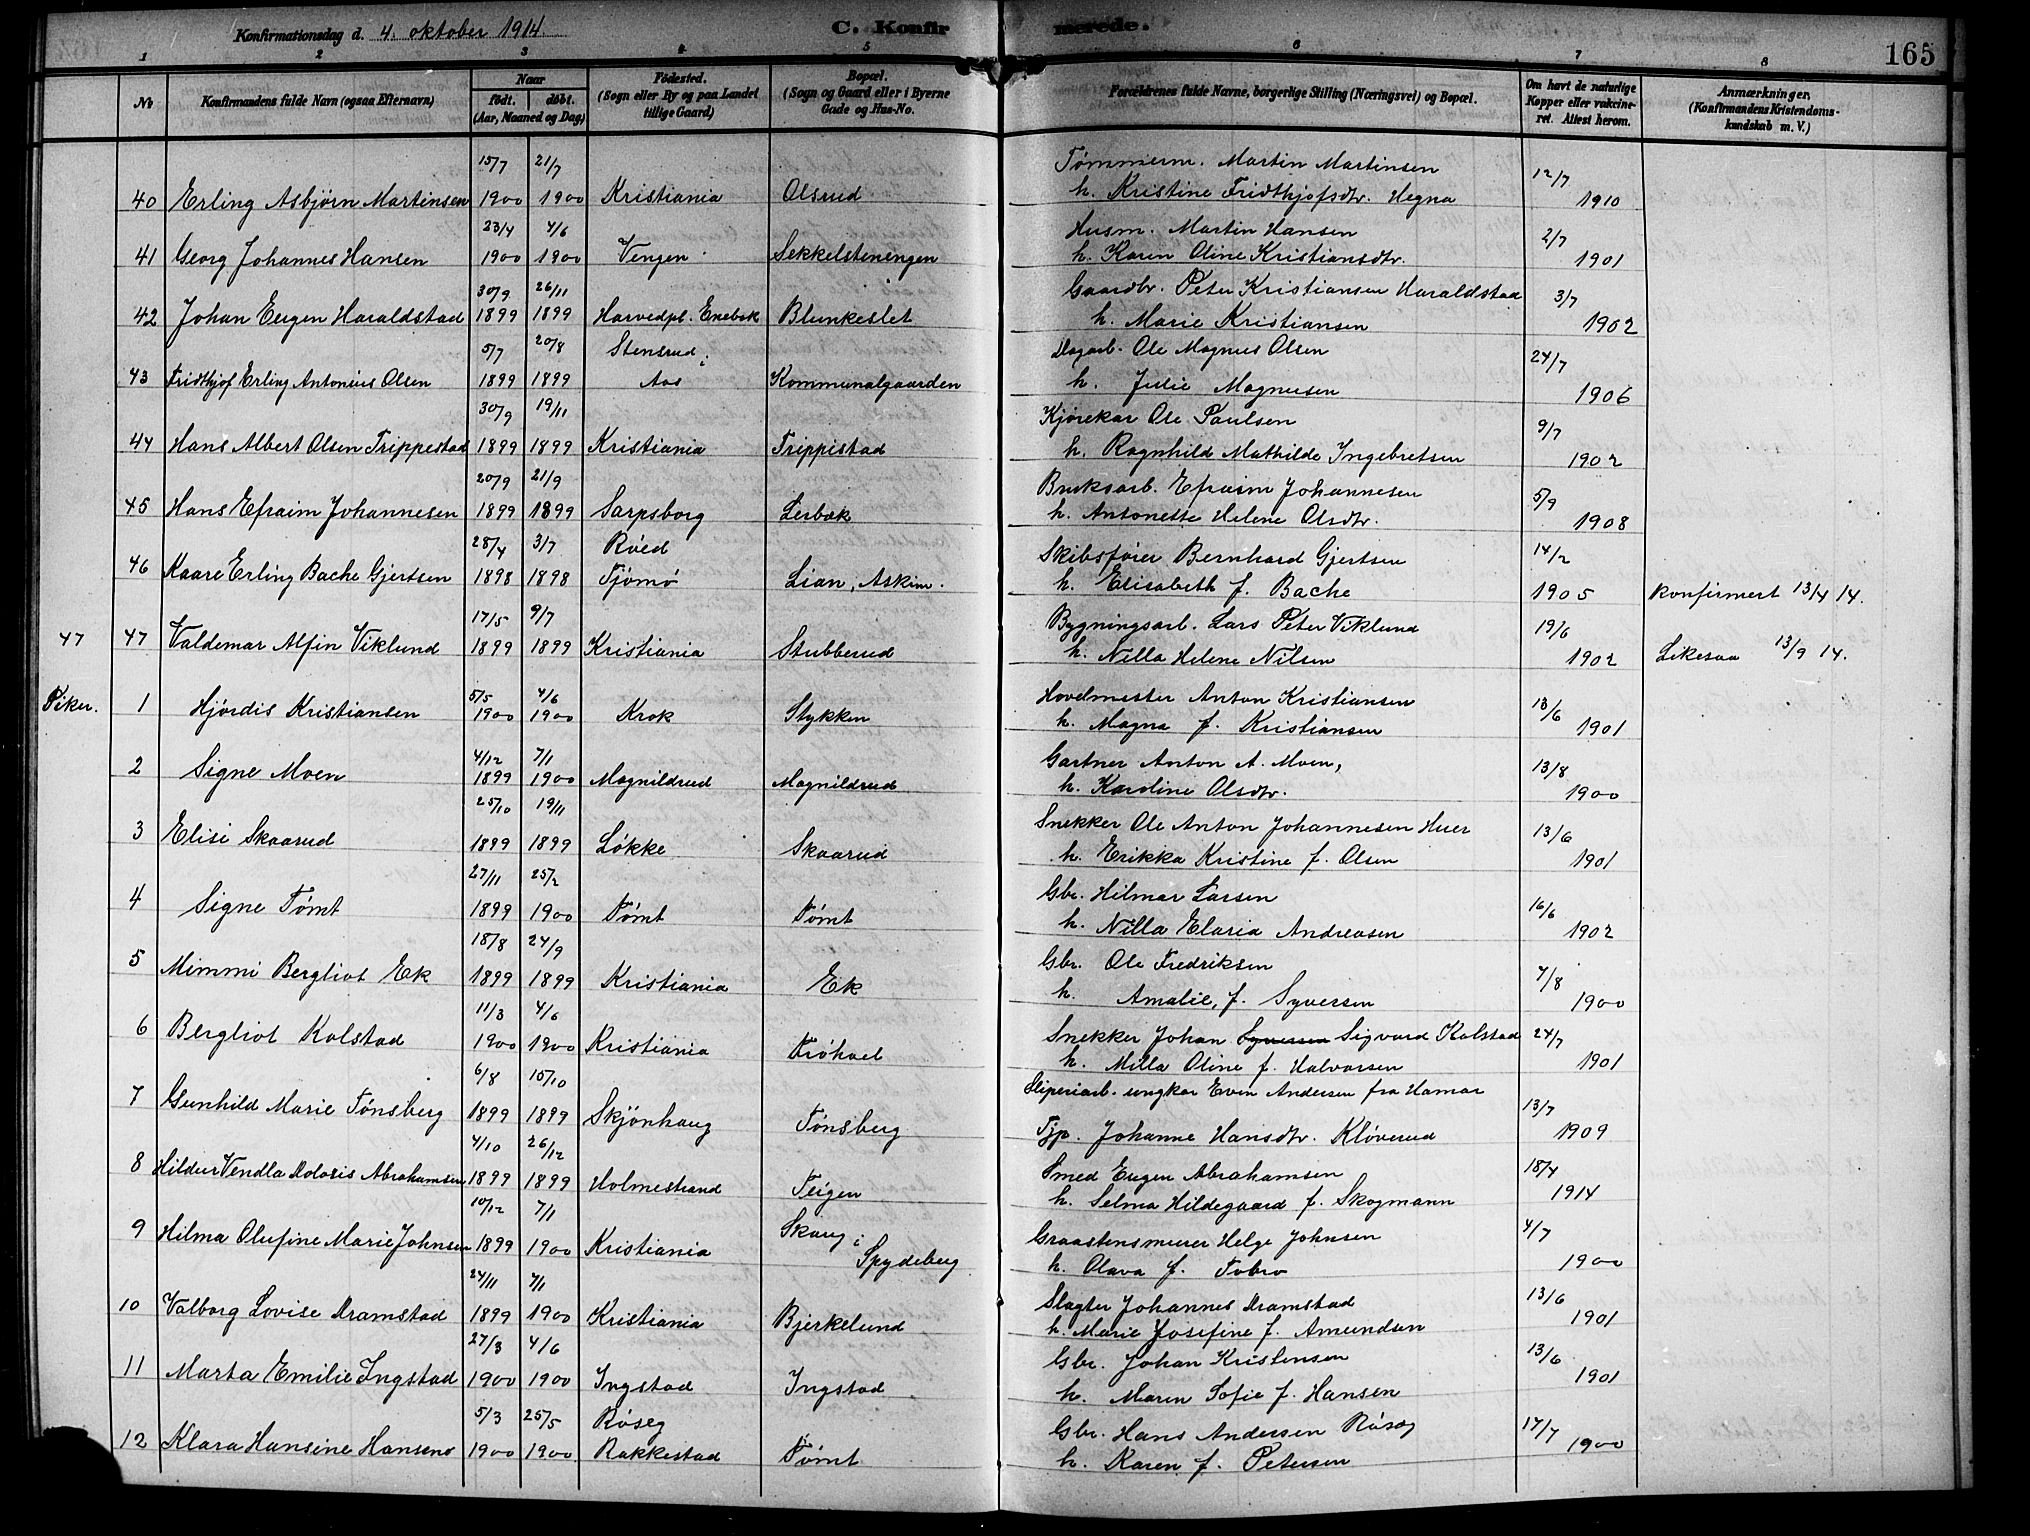 Konfirmationsdag d. 4. oktober 1914. C. Konfirmerede. 165
1 2 3 4 5 6 7 8
No
Konfirmandens fulde Navn (ogsaa Efternavn)
Naar
født. døbt.
(Aar, Maaned og Dag)
Fødested.
(Sogn eller By og paa Landet
tillige Gaard)
Bopæl.
(Sogn og Gaard eller i Byerne
Gade og Hus-No.
Forældrenes fulde Navne, borgerlige Stilling (Næringsvei) og Bopæl.
Om havt de naturlige
Kopper eller vakcine-
ret. Attest herom.
Anmærkninger,
(Konfirmandens Kristendoms-
kundskab m. V.)
15/7 21/7 Tømmerm. Martin Martinsen 12/7
40 Erling Asbjørn Martinsen 1900 1900 Kristiania Olsrud h. Kristine Fridthjofsdtr. Hegna 1910
23/4 4/6 Husm. Martin Hansen 2/7
41 Georg Johannes Hansen 1900 1900 Vengen Sekkelstenengen h. Karen Oline Kristiansdtr. 1901
30/9 26/11 Gaardbr. Peter Kristiansen Haraldstad 3/7
42 Johan Eugen Haraldstad 1899 1899 Harvedpl. Enebak Blunkeslet h. Marie Kristiansen 1902
5/7 20/8 Stensrud i Dagarb. Ole Magnus Olsen 24/7
43 Fridthjof Erling Antonius Olsen 1899 1899 Aas Kommunalgaarden h. Julie Magnusen 1906
30/9 19/11 Kjørekar Ole Paulsen 9/7
44 Hans Albert Olsen Trippestad 1899 1899 Kristiania Trippistad h. Ragnhild Mathilde Ingebretsen 1902
20/9 21/9 Bruksarb. Efraim Johannesen 5/9
45 Hans Efraim Johannesen 1899 1899 Sarpsborg Lerbak h. Antonette Helene Olsdtr. 1908
28/4 3/7 Røed Skibsfører Bernhard Gjertsen 14/2
46 Kaare Erling Bache Gjertsen 1898 1898 Tjømø Lian, Askim. h. Elisabeth f. Bache 1905 Konfirmert 13/4 14.
17/5 9/7 Bygningsarb. Lars Peter Viklund 19/6
47 47 Valdemar Alfin Viklund 1899 1899 Kristiania Stubberud h. Nilla Helene Nilsen 1902 Likesaa 13/9 14.
Piker. 5/5 4/6 Hovelmester Anton Kristiansen 13/6
1 Hjørdis Kristiansen 1900 1900 Krok Stykken h. Magna f. Kristiansen 1901
4/12 7/1 Gartner Anton A. Moen, 13/8
2 Signe Moen 1899 1900 Magnildrud Magnildrud h. Karoline Olsdtr. 1900
25/10 19/11 Snekker Ole Anton Johannesen Huer 13/6
3 Elise Skaarud 1899 1899 Løkke Skaarud h. Erikka Kristine f. Olsen 1901
27/11 25/2 Gbr. Hilmar Larsen 16/6
4 Signe Tømt 1899 1900 Tømt Tømt h. Nilla Elaria Andreasen 1902
18/8 24/9 Gbr. Ole Fredriksen 7/8
5 Mimmi Bergliot Ek 1899 1899 Kristiania Ek h. Amalie, f. Syversen 1900
11/3 4/6 Snekker Johan Syversen Sigvard Kolstad 24/7
6 Bergliot Kolstad 1900 1900 Kristiania Frøhael h. Milla Oline f. Halvorsen 1901
6/8 15/10 Sliperiarb. ungkar Even Andersen fra Hamar 13/7
7 Gunhild Marie Tønsberg 1899 1899 Skjønhaug Tønsberg Tjp. Johanne Hansdtr. Kløverud 1909
4/10 26/12 Smed Eugen Abrahamsen 18/4
8 Hildur Vendla Doloris Abrahamsen 1899 1899 Holmestrand Teigen h. Selma Hildegaard f. Skogmann 1914
10/12 7/1 Skaug i Graastensmurer Helge Johnsen 4/7
9 Hilma Olufine Marie Johnsen 1899 1900 Kristiania Spydeberg h. Olava f. Fobro 1900
24/11 7/1 Slagter Johannes Dramstad 13/6
10 Valborg Lovise Dramstad 1899 1900 Kristiania Bjerkelund h. Marie Josefine f. Amundsen 1901
27/3 4/6 Gbr. Johan Kristensen 13/6
11 Marta Emilie Ingstad 1900 1900 Ingstad Ingstad h. Maren Sofie f. Hansen 1901
5/3 25/5 Røseg Gbr. Hans Andersen Røseg 17/7
12 Klara Hansine Hansen 1900 1900 Rakkestad Tømt h. Karen f. Petersen 1900